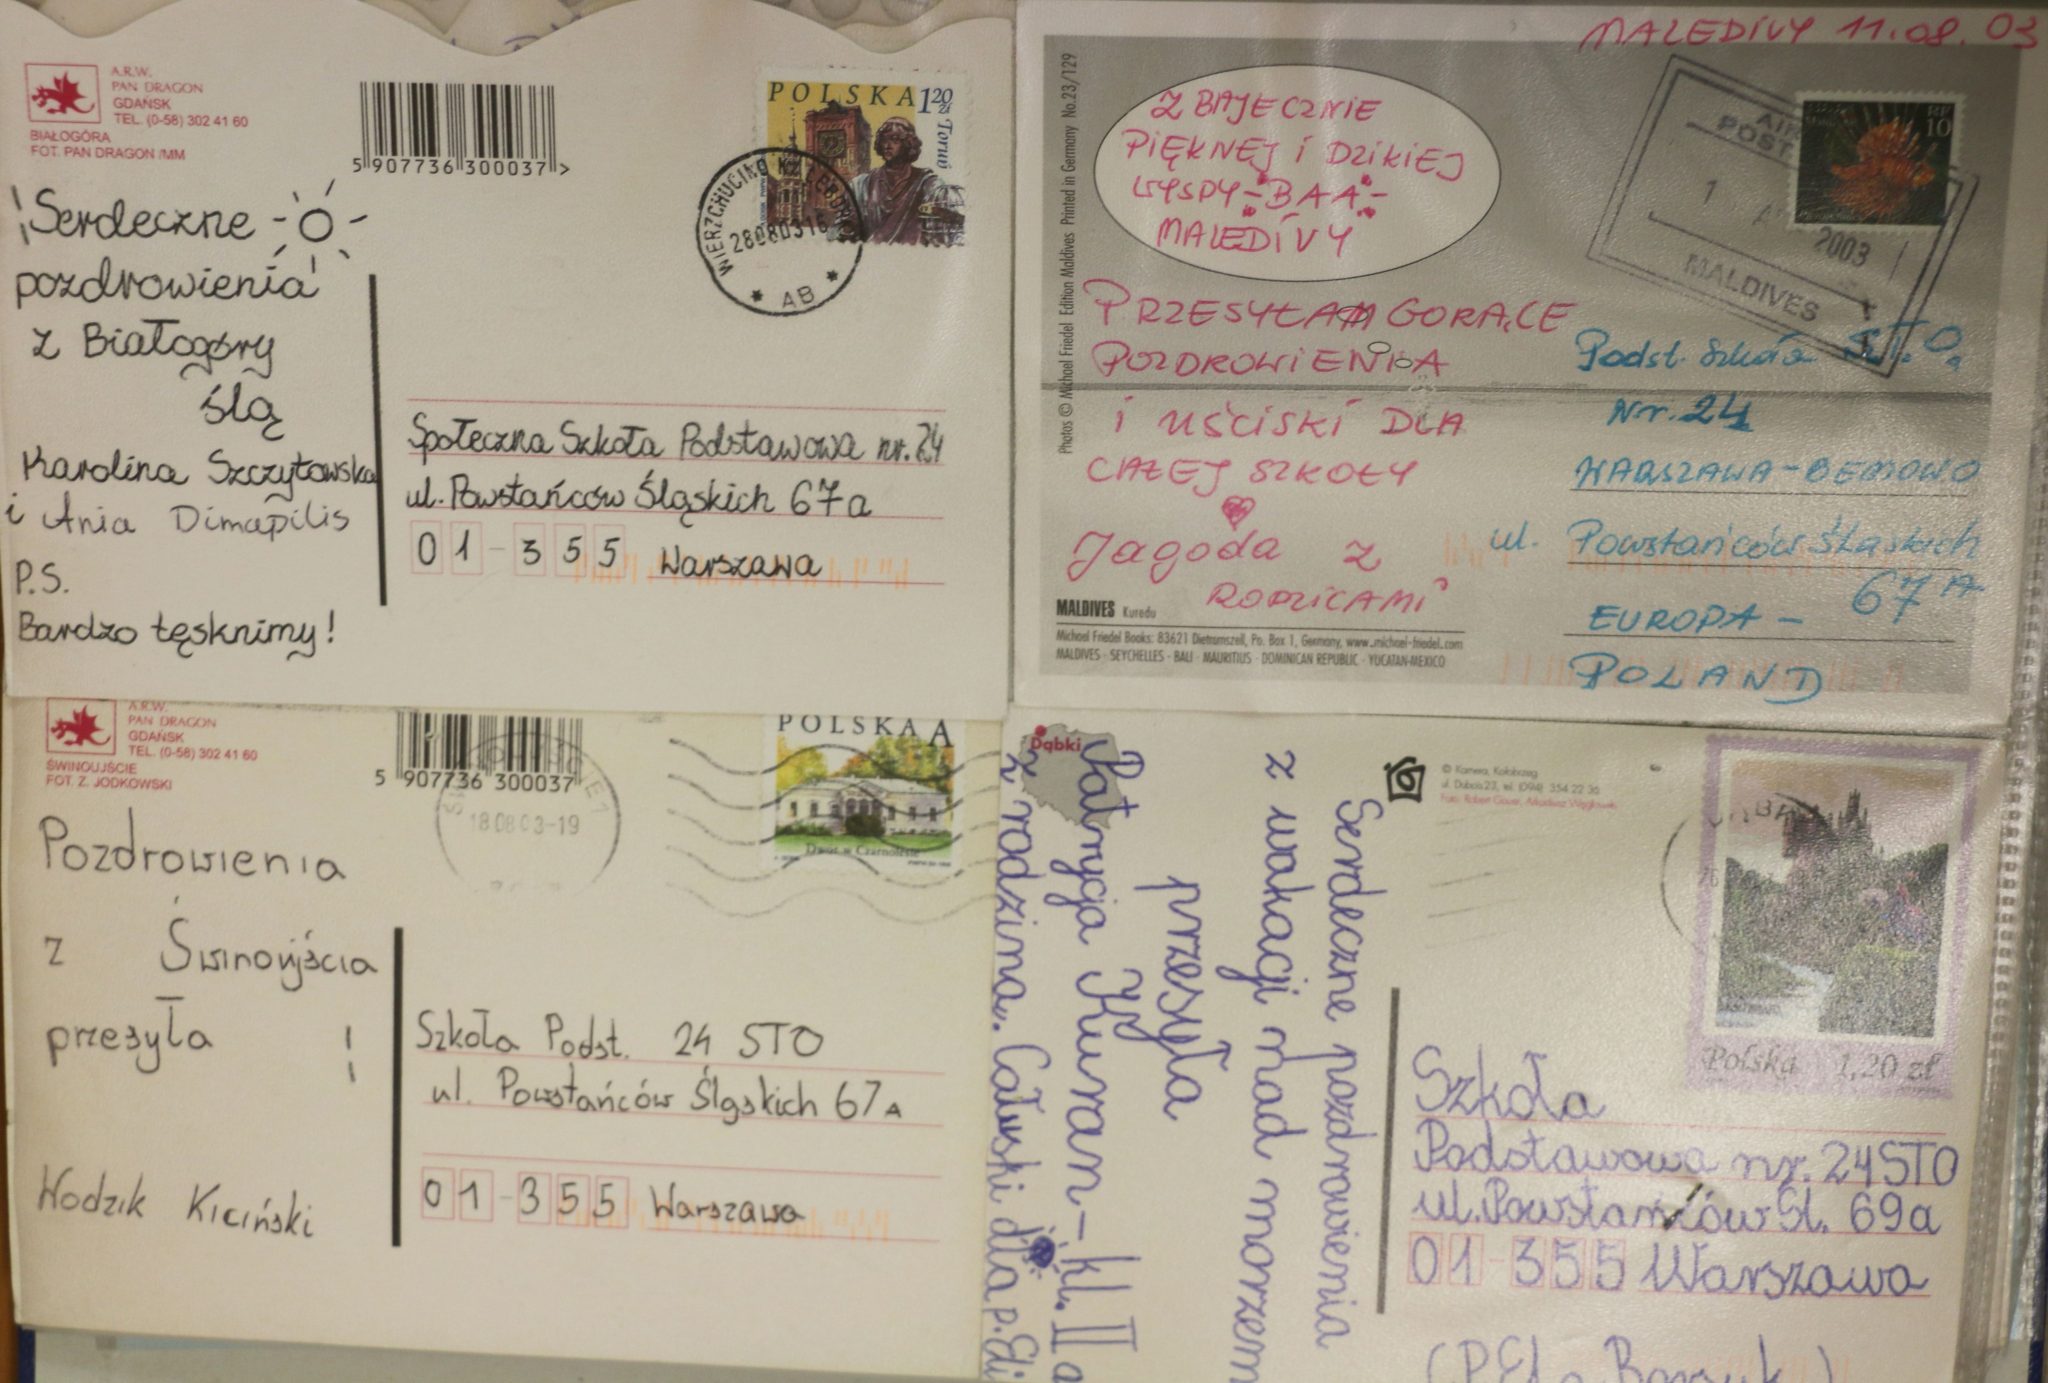 A.R.W.
PAN DRAGON
GDAŃSK
TEL. (0-58) 302 41 60
BIAŁOGÓRA
FOT. PAN DRAGON /MM
5 907736 300037 >
POLSKA 1,20 zł
Toruń
WIERZCHUCINO K/LĘBORKA
28080316
* AB *
Serdeczne
pozdrowienia
z Białogóry
ślą
Karolina Szczytowska
i Ania Dimapilis
P.S.
Bardzo tęsknimy!
Społeczna Szkoła Podstawowa nr. 24
ul. Powstańców Śląskich 67a
01-355 Warszawa
MALEDIVY 11.08.03
Photos © Michael Friedel Edition Maldives Printed in Germany No.23/129
Z BAJECZNIE
PIĘKNEJ I DZIKIEJ
WYSPY - BAA -
MALEDIVY
AIR
POST
1 2003
MALDIVES
RF
10
PRZESYŁAM GORĄCE
POZDROWIENIA
i UŚCISKI DLA
CAŁEJ SZKOŁY
Jagoda z
RODZICAMI
MALDIVES Kuredu
Michael Friedel Books: 83621 Dietramszell, Po. Box 1, Germany, www.michael-friedel.com
MALDIVES - SEYCHELLES - BALI - MAURITIUS - DOMINICAN REPUBLIC - YUCATAN-MEXICO
Podst. Szkoła S.T.O.
Nr. 24
WARSZAWA - BEMOWO
ul. Powstańców Śląskich
67A
EUROPA -
POLAND
A.R.W.
PAN DRAGON
GDAŃSK
TEL. (0-58) 302 41 60
ŚWINOUJŚCIE
FOT. Z. JODKOWSKI
5 907736 300037
18 08 03-19
POLSKA A
Dwór w Czarnolesie
Pozdrowienia
z Świnoujścia
przesyła
Wodzik Kiciński
Szkoła Podst. 24 STO
ul. Powstańców Śląskich 67A
01-355 Warszawa
Dąbki
Serdeczne pozdrowienia
z wakacji nad morzem
przesyła
Patrycja Kuran - kl. II a
z rodziną. Całuski dla p. Eli
© Kamera, Kołobrzeg
ul. Dubois 23, tel. (094) 354 22 36
Foto: Robert Gauer, Arkadiusz Węglowski
Polska 1,20 zł
Szkoła
Podstawowa nr. 24 STO
ul. Powstańców Śl. 69a
01-355 Warszawa